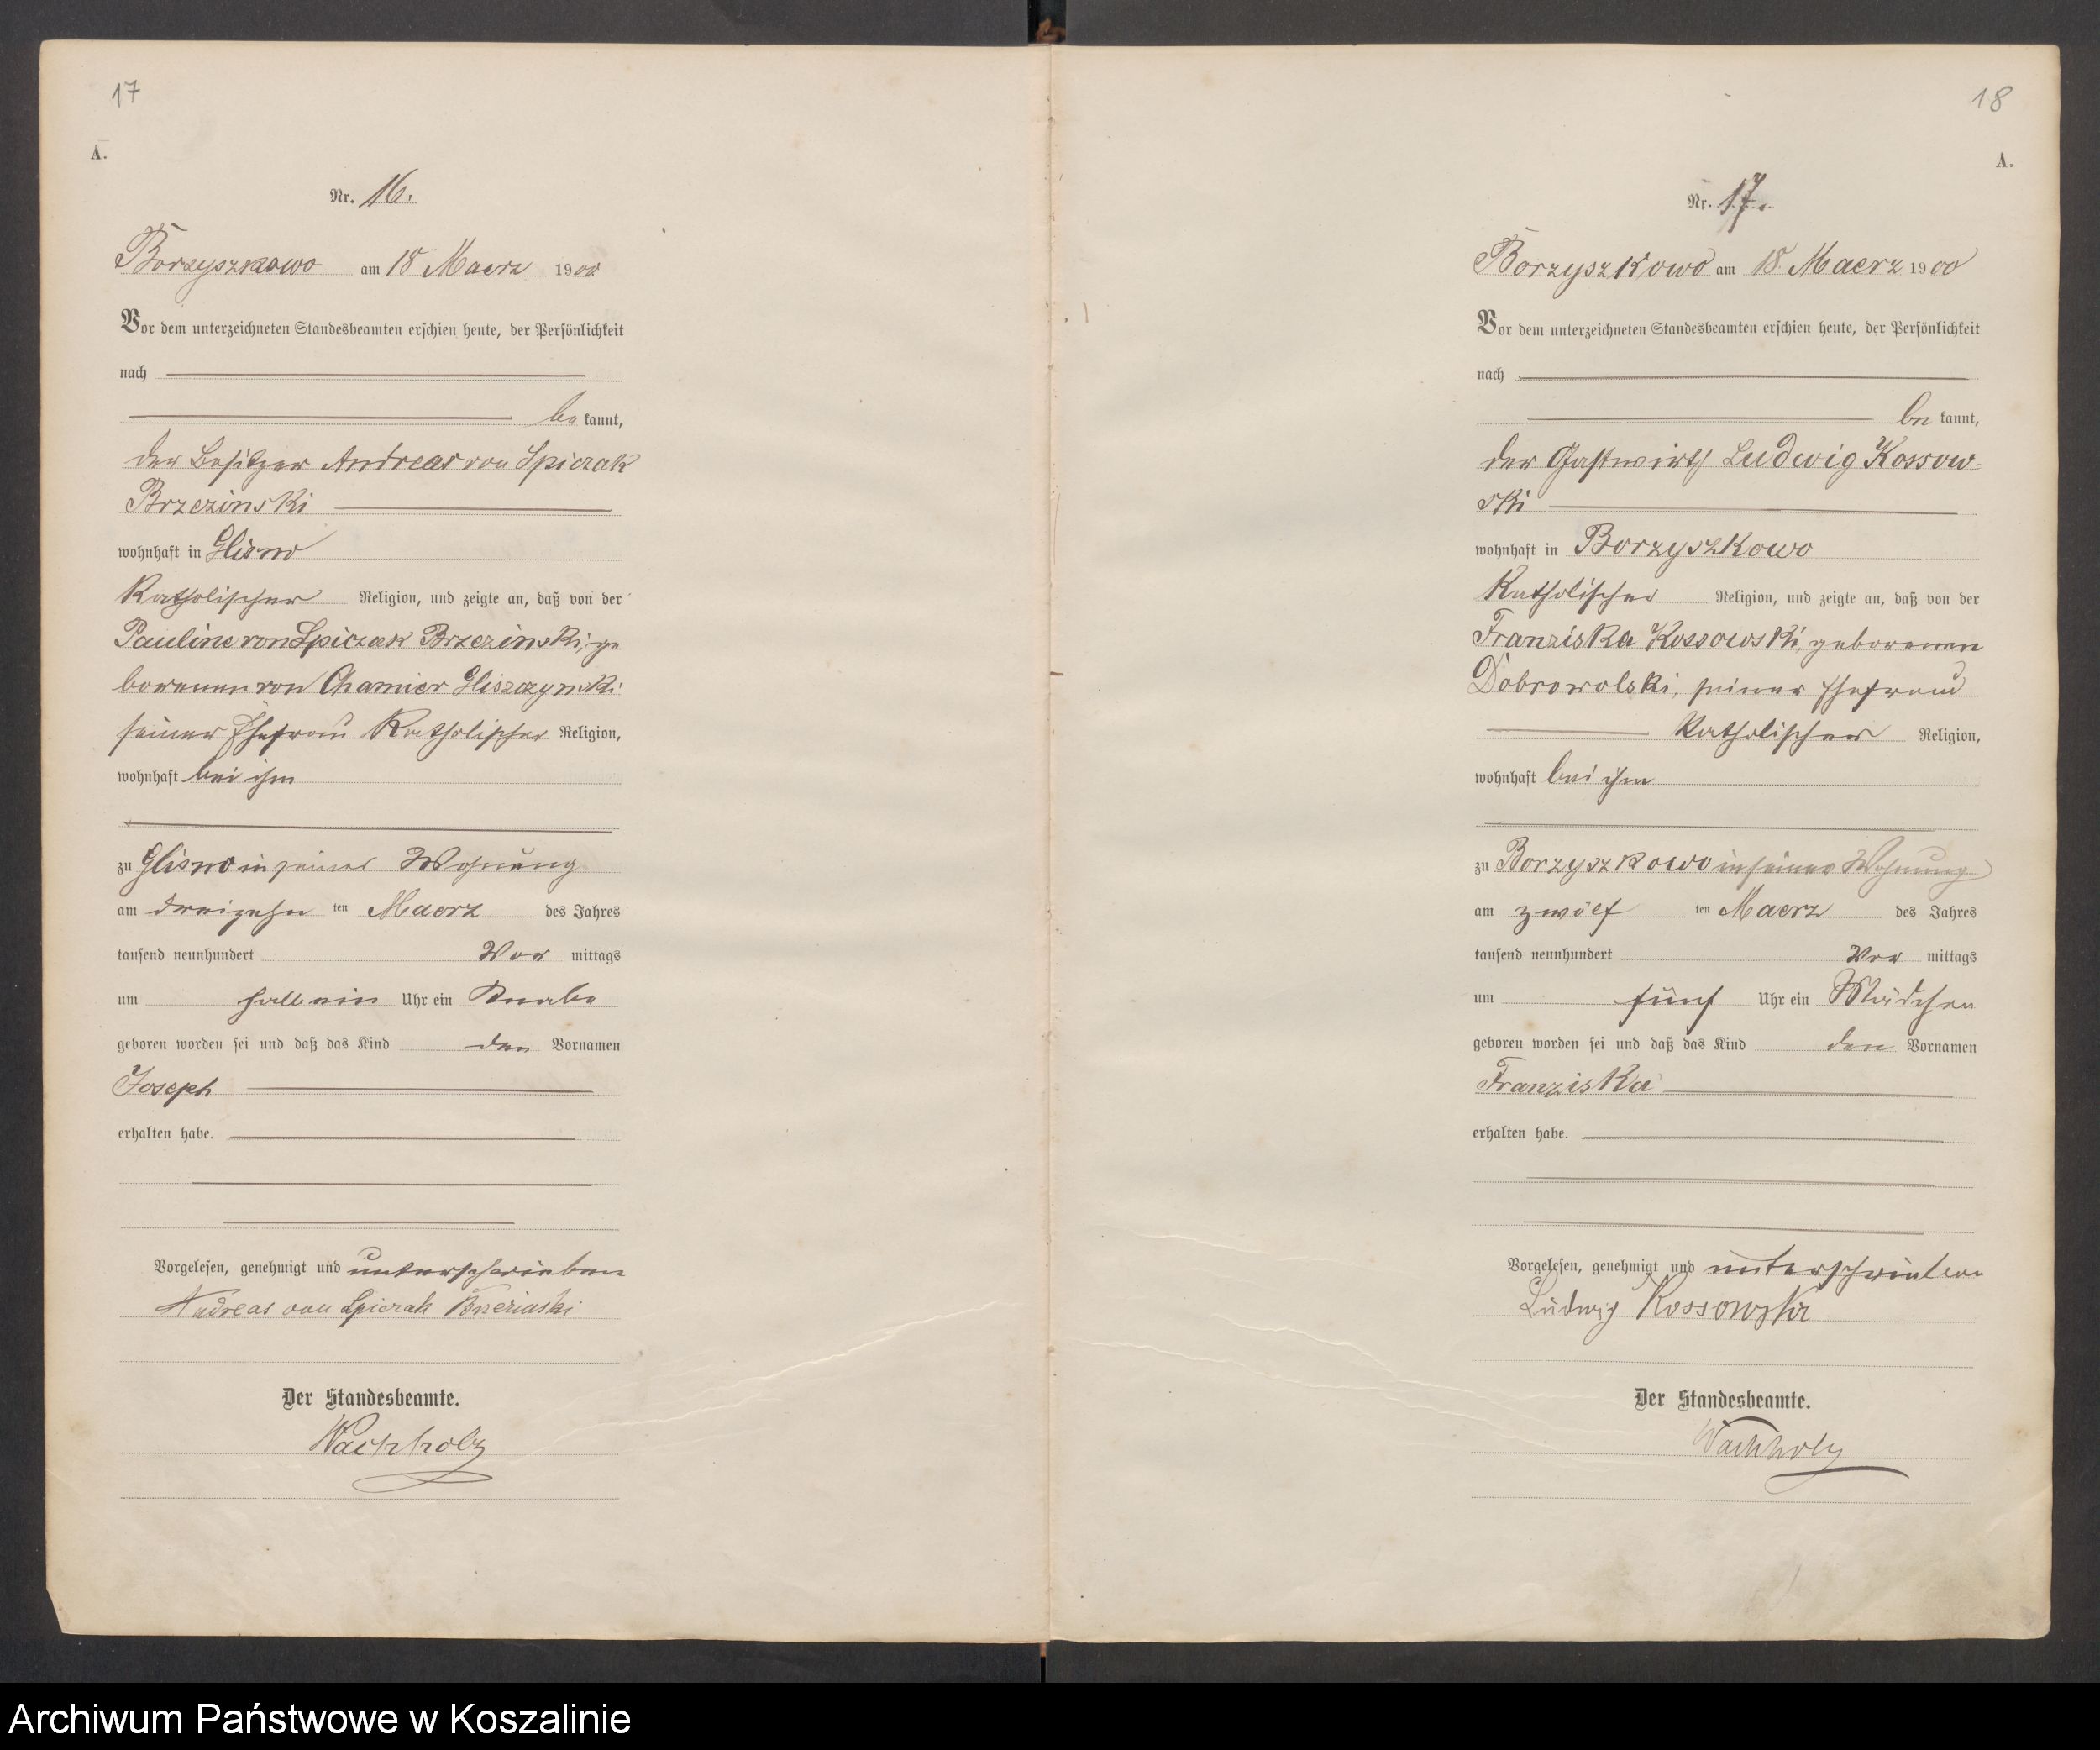 17
A.
Nr. 16.
Borzyszkowo am 18 Maerz 1900
Vor dem unterzeichneten Standesbeamten erschien heute, der Persönlichkeit
nach
be kannt,
der Besitzer Andreas von Spiczak
Brzezinski
wohnhaft in Glisno
Katholischer Religion, und zeigte an, daß von der
Pauline von Spiczak Brzezinski, ge
borenen von Chamier Gliszczynski
seiner Ehefrau Katholischer Religion,
wohnhaft bei ihm
zu Glisno in seiner Wohnung
am dreizehn ten Maerz des Jahres
tausend neunhundert Vor mittags
um halb ein Uhr ein Knabe
geboren worden sei und daß das Kind den Vornamen
Joseph
erhalten habe.
Vorgelesen, genehmigt und unterschrieben
Andreas von Spiczak Brzezinski
Der Standesbeamte.
Wachholz
18
A.
Nr. 17.
Borzyszkowo am 18. Maerz 1900
Vor dem unterzeichneten Standesbeamten erschien heute, der Persönlichkeit
nach
be kannt,
der Gastwirth Ludwig Kossow-
ski
wohnhaft in Borzyszkowo
Katholischer Religion, und zeigte an, daß von der
Franziska Kossowski, geborenen
Dobrowolski, seiner Ehefrau
Katholischer Religion,
wohnhaft bei ihm
zu Borzyszkowo in seiner Wohnung
am zwölf ten Maerz des Jahres
tausend neunhundert Vor mittags
um fünf Uhr ein Mädchen
geboren worden sei und daß das Kind den Vornamen
Franziska
erhalten habe.
Vorgelesen, genehmigt und unterschrieben
Ludwig Kossowski
Der Standesbeamte.
Wachholz
Archiwum Państwowe w Koszalinie